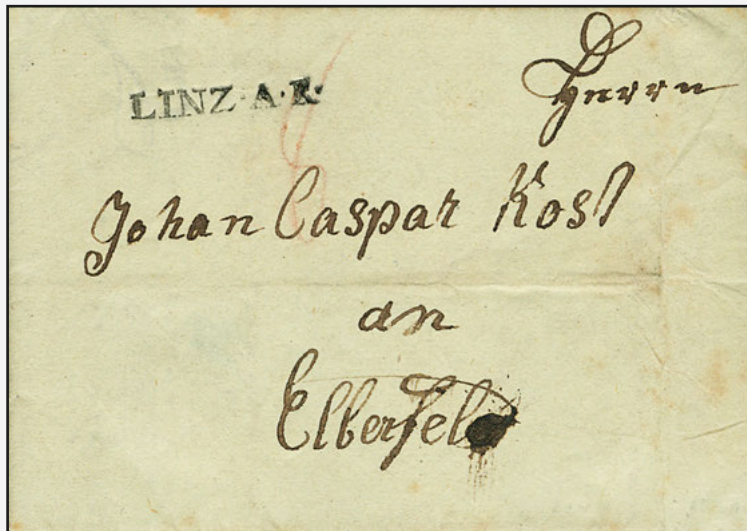 LINZ·A·R·
Herrn
Johan Caspar Kost
an
Elberfeld